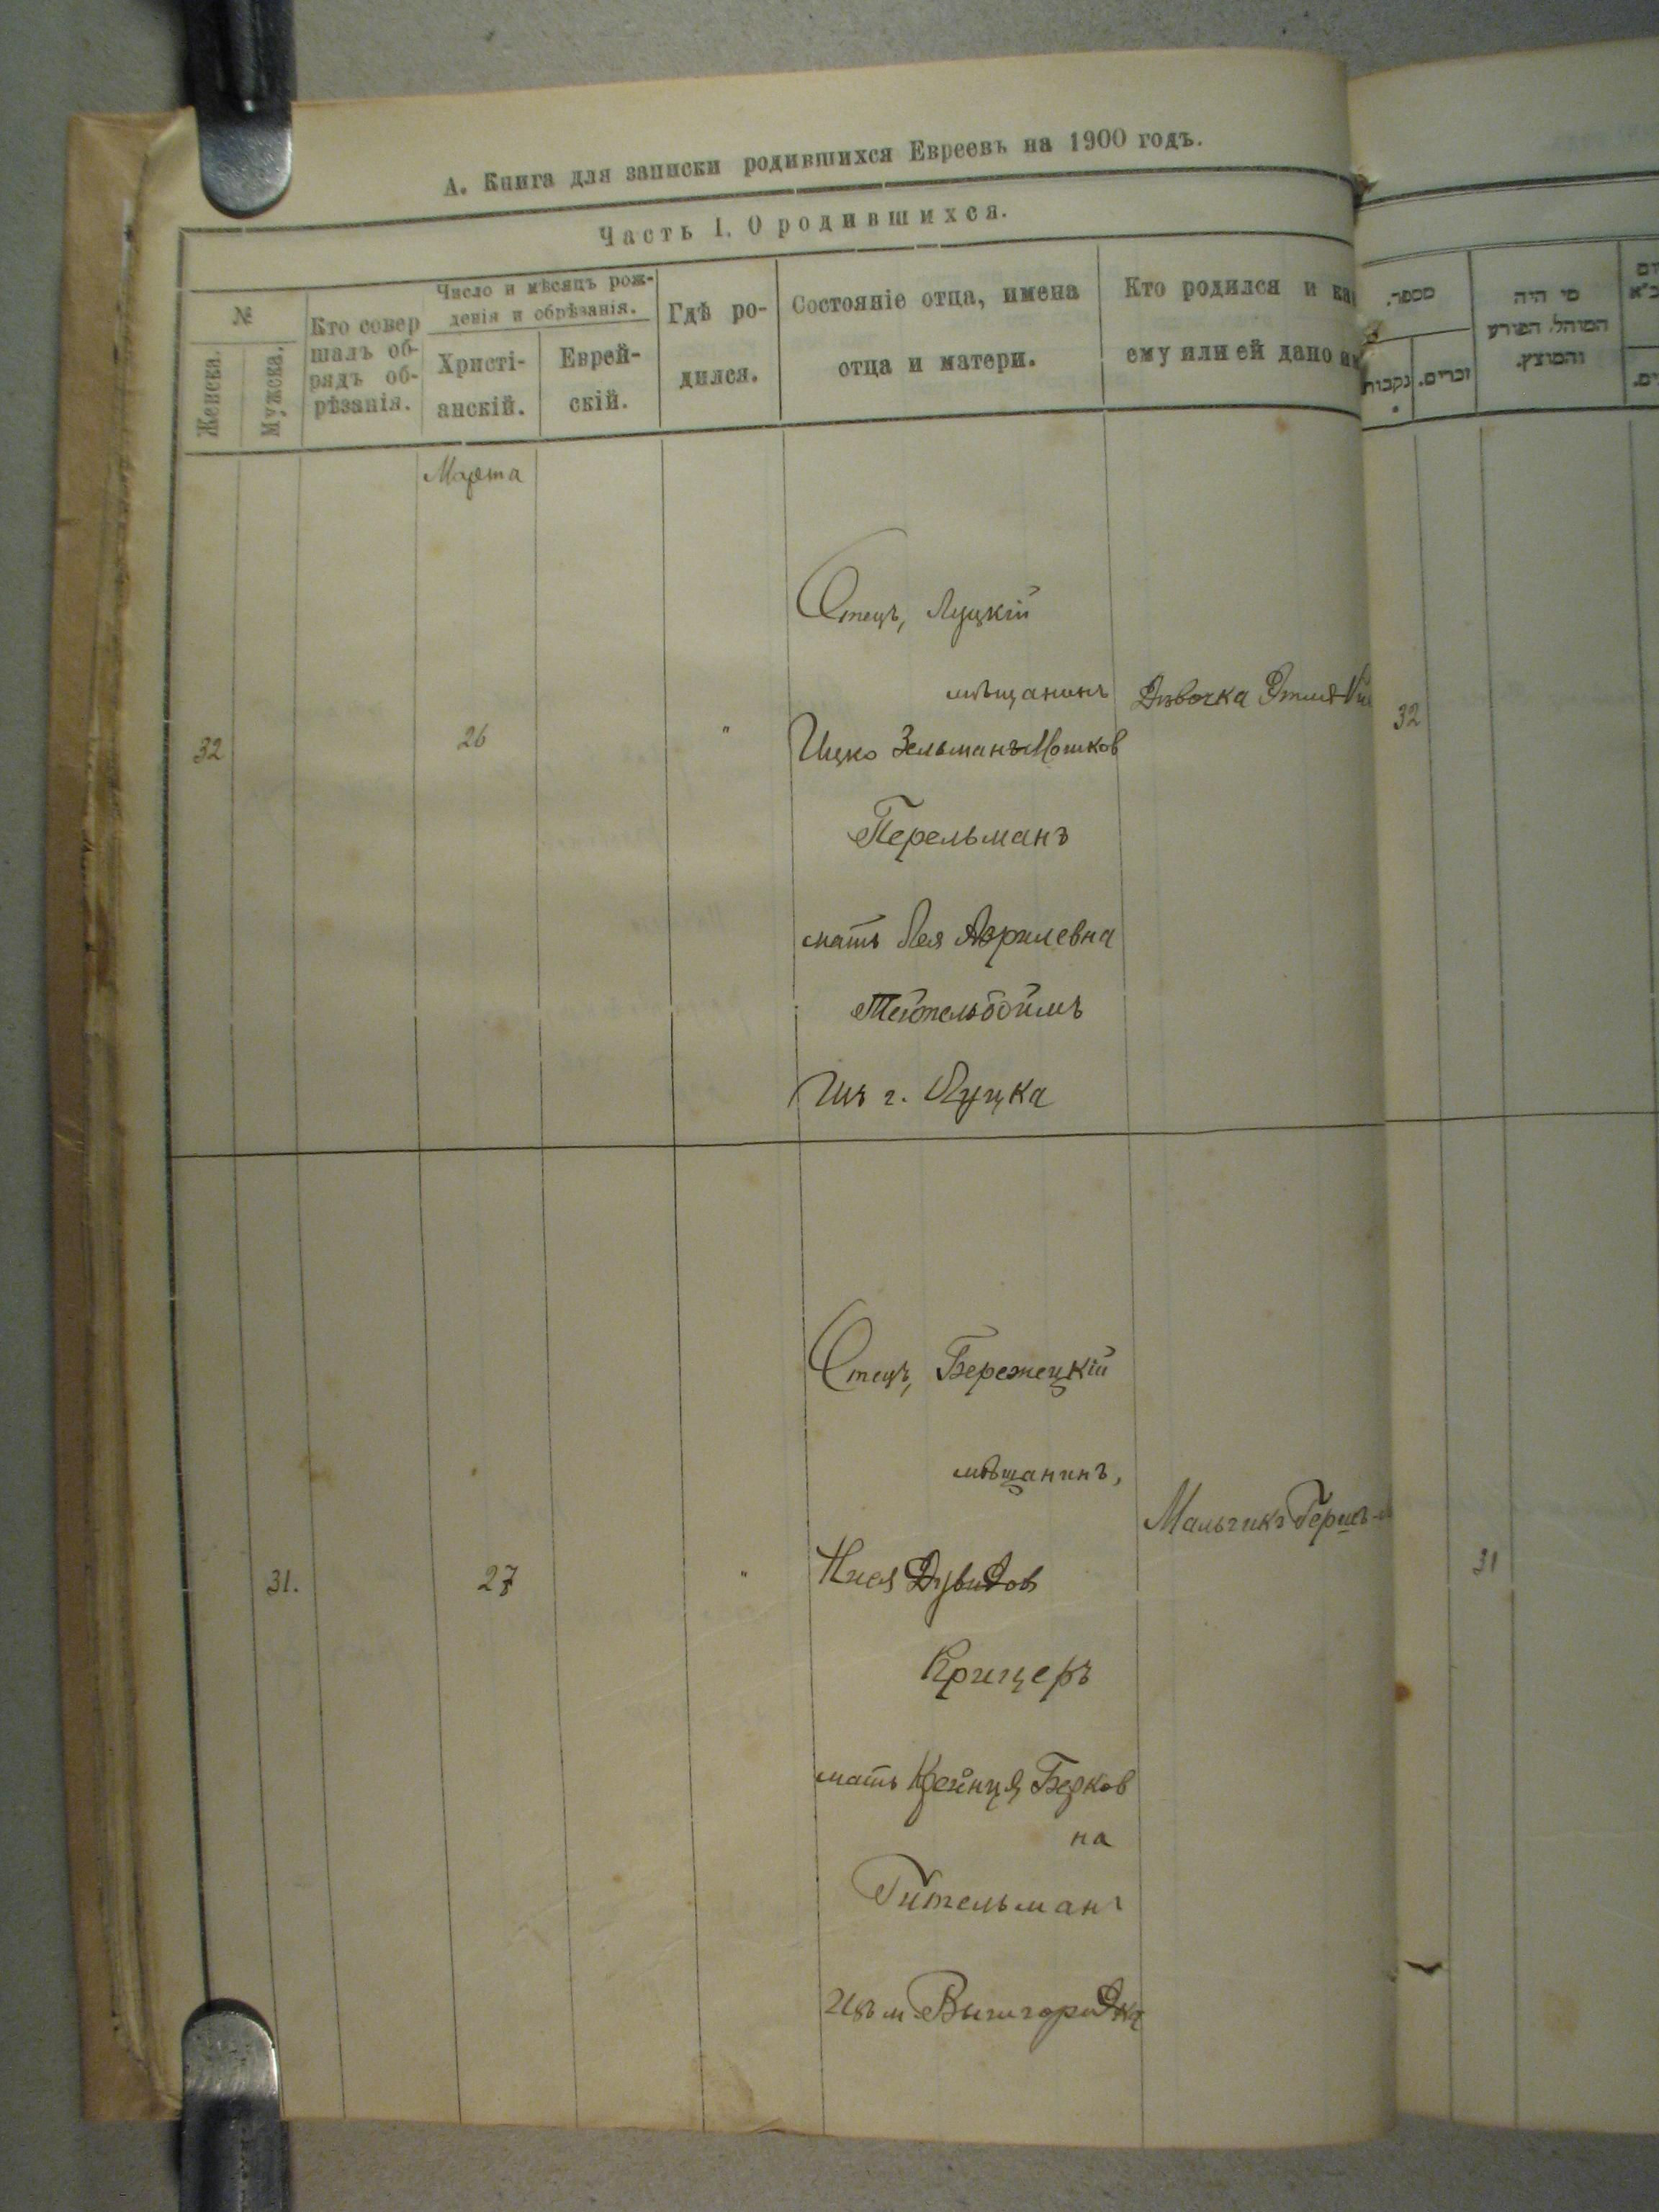 А. Книга для записки родившихся Евреевъ на 1900 годъ.
Часть I. О родившихся.
№
Женска.
Мужска.
Кто совер
шалъ об-
рядъ об-
рѣзанія.
Число и мѣсяцъ рож-
денія и обрѣзанія.
Христі-
анскій.
Еврей-
скій.
Гдѣ ро-
дился.
Состояніе отца, имена
отца и матери.
Кто родился и
ему или ей дано
מספר.
נקבות
זכרים.
מי היה
המוהל, הפורע
והמוצץ.
Марта
32
26
"
Отецъ, Луцкій
мѣщанинъ
Ицко Зельманъ Мошков
Перельманъ
мать Лея Азрилевна
Тейтельбоймъ
Изъ г. Луцка
Дѣвочка
32
31.
27
"
Отецъ, Бережецкій
мѣщанинъ,
Нися Дувидовъ
Крицеръ
мать Крейнця Берков
на
Гительманъ
Изъ м. Вышгородка
Мальчикъ Гершъ-
31